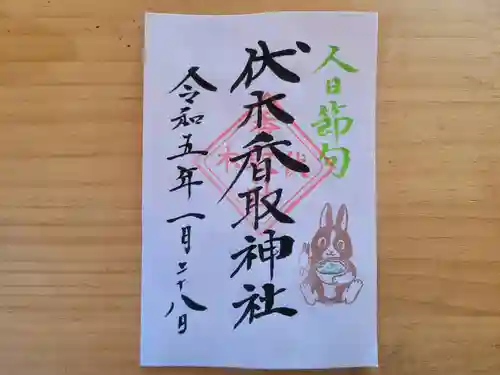 人日節句
伏木香取神社
令和五年一月二十八日